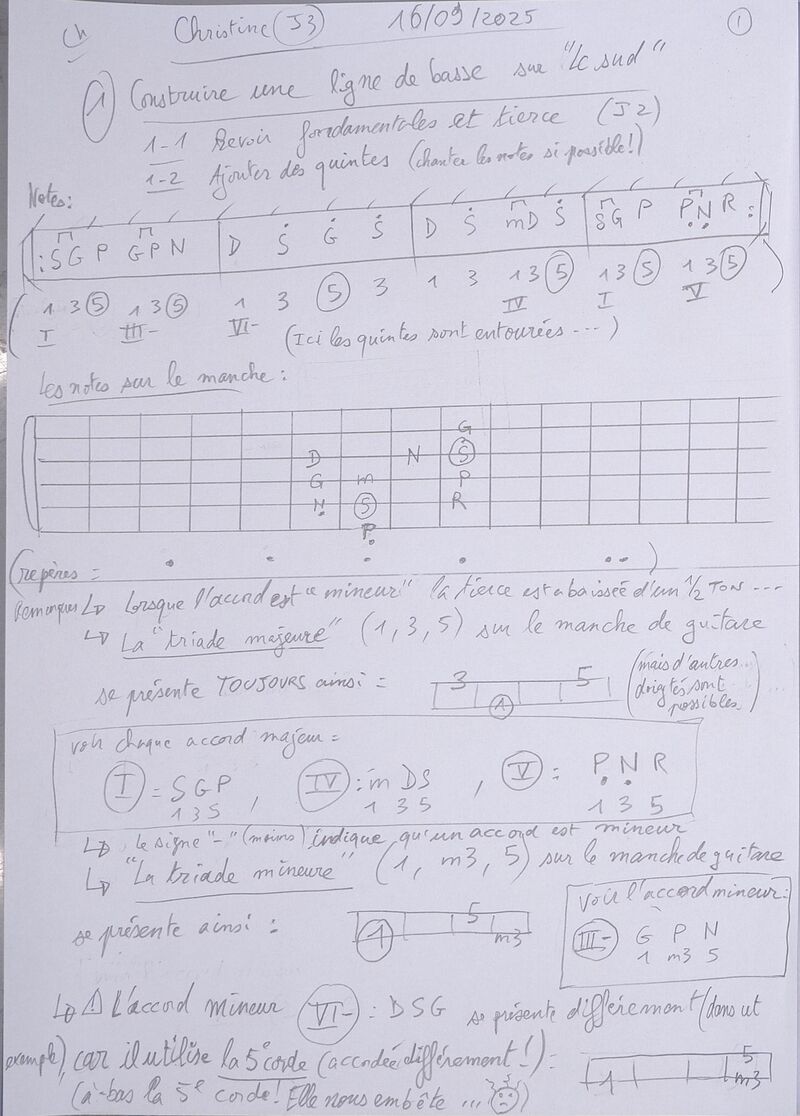 Ch Christine (J3) 16/09/2025 1
1 Construire une ligne de basse sur "Le sud"
1-1 Revoir fondamentales et tierce (J2)
1-2 Ajouter des quintes (chanter les notes si possible!)
Notes:
/ / / / / / / / / / / / / / / /
: S G P G P N | D Ṡ Ġ Ṡ | D Ṡ ṁ D Ṡ | S G P P N R :
( 1 3 5 1 3 5 1 3 5 3 1 3 1 3 5 1 3 5 1 3 5 )
I III- VI- IV I V
(Ici les quintes sont entourées ...)
Les notes sur le manche :
G
D N Ṡ
G m P
Ṇ S R
Ṃ
(repères = • • • • •• )
Remarques ↳ Lorsque l'accord est "mineur" la tierce est abaissée d'un 1/2 TON ...
↳ La "triade majeure" (1, 3, 5) sur le manche de guitare
se présente TOUJOURS ainsi = 3 1 5 (mais d'autres...
doigtés sont
possibles.)
Voir chaque accord majeur =
I = S G P , IV : m D S , V : P̣ Ṇ R
1 3 5 1 3 5 1 3 5
↳ le signe "-" (moins) indique qu'un accord est mineur
↳ "La triade mineure" (1, m3, 5) sur le manche de guitare
se présente ainsi : 1 5 m3
Voir l'accord mineur :
III- G P N
1 m3 5
↳ ⚠ L'accord mineur VI- : D S G se présente différement (dans cet
exemple), car il utilise la 5e corde (accordée différement !) =
1 5 m3
(à-bas la 5e corde ! Elle nous embête ... )